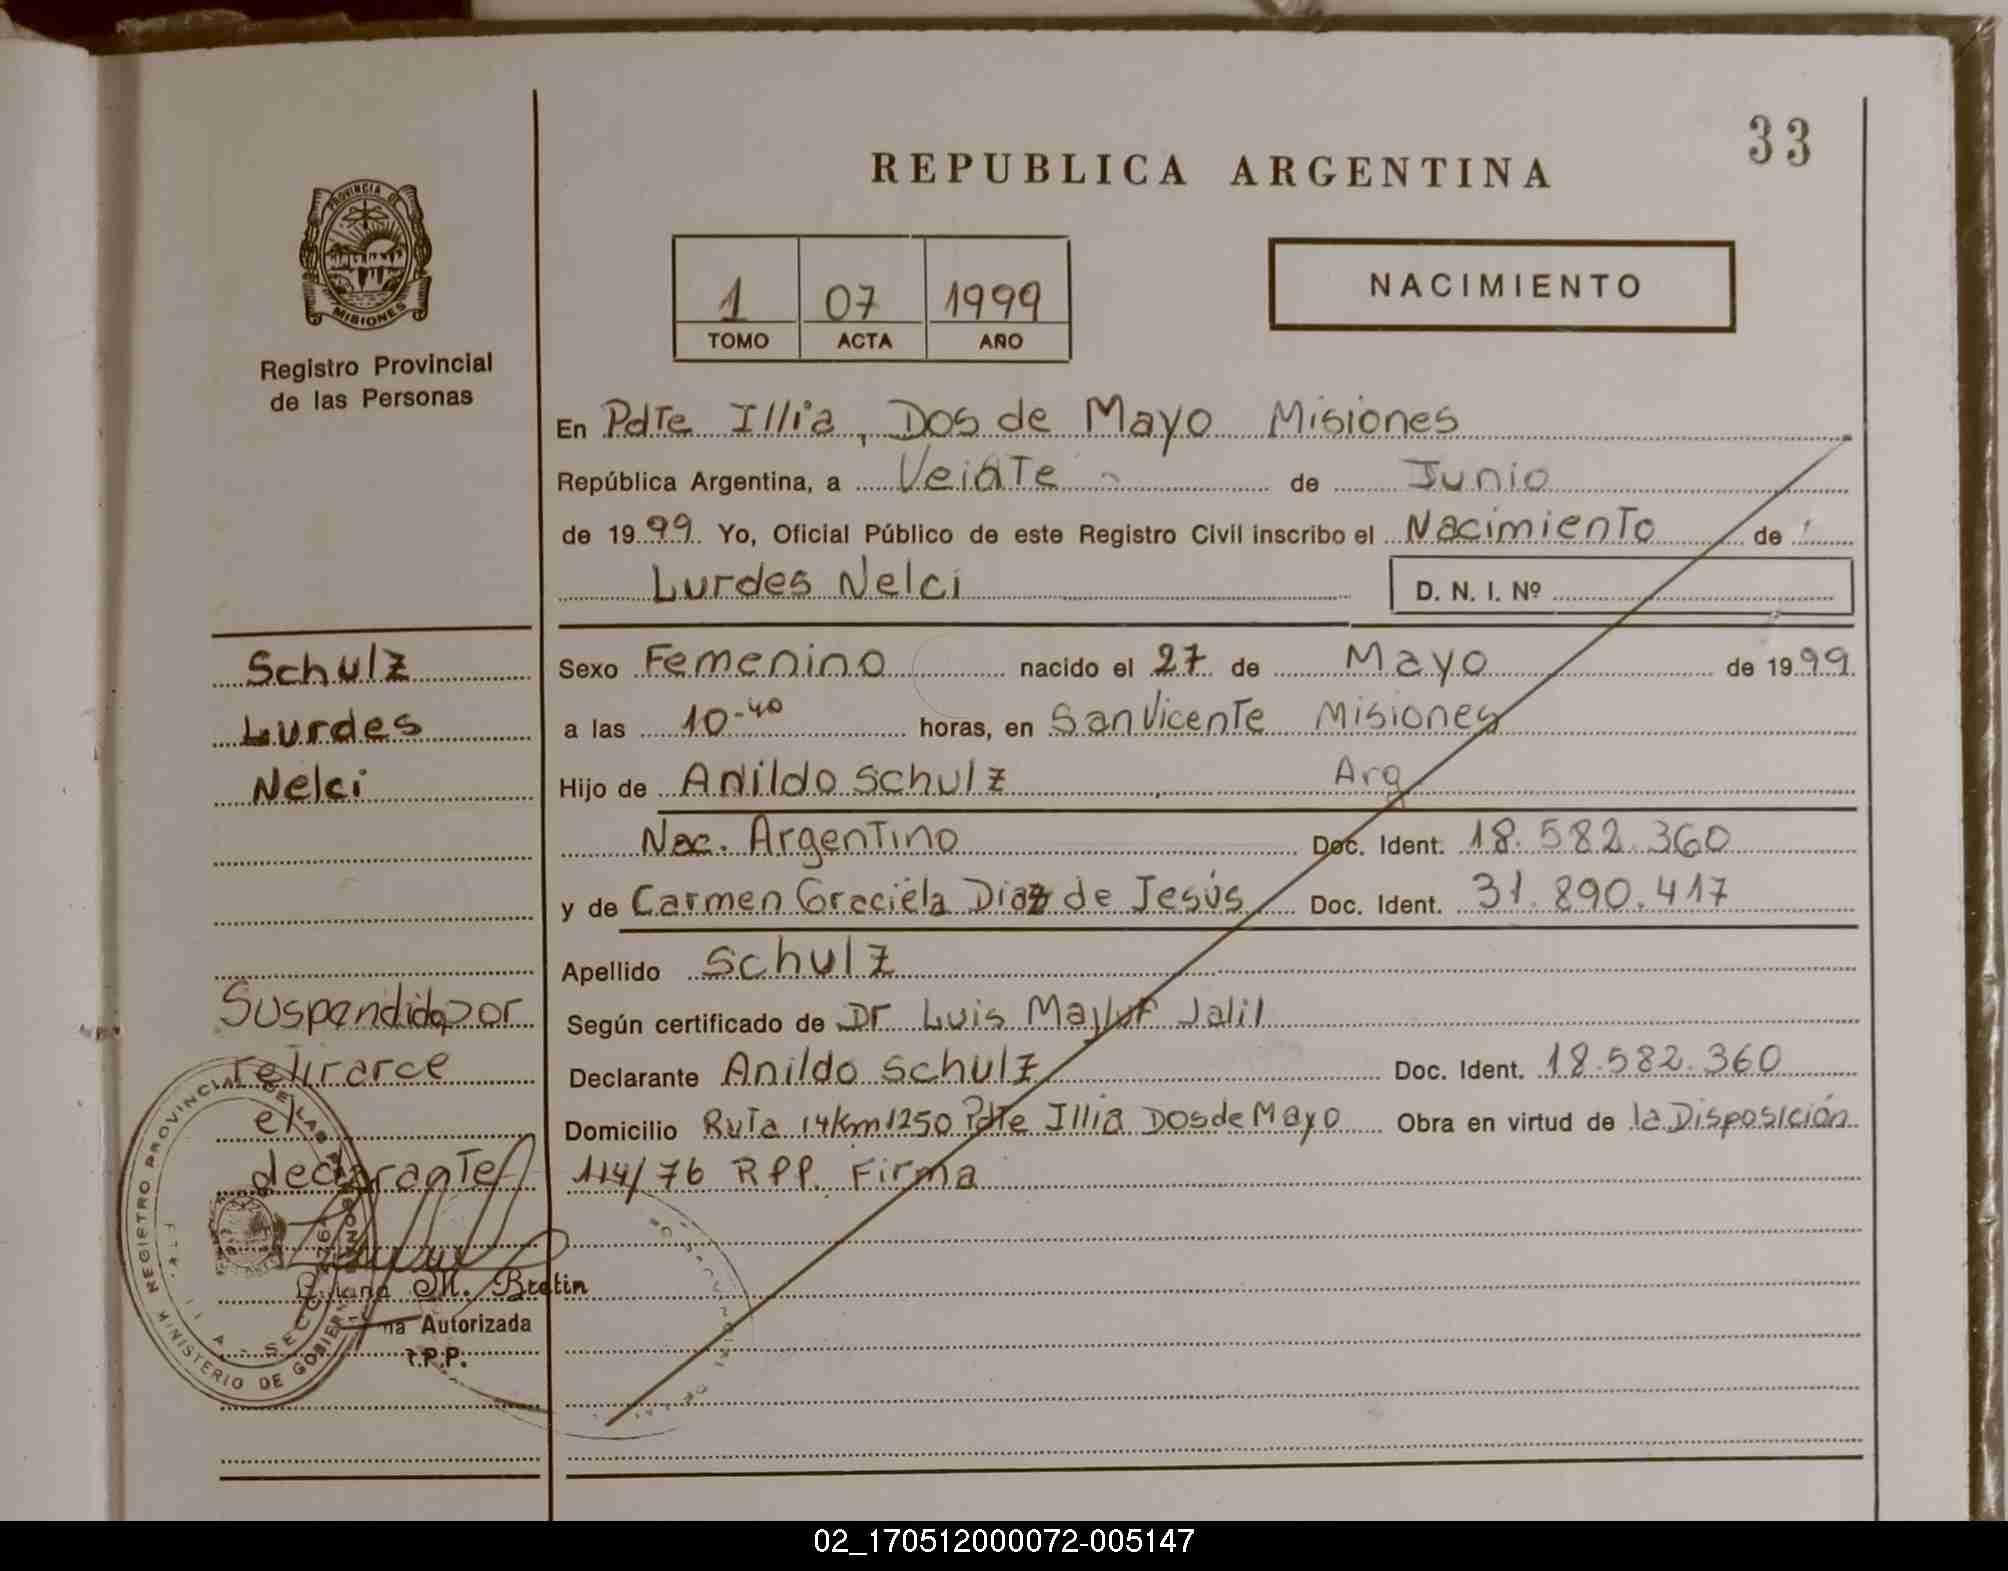 33
REPUBLICA ARGENTINA
PROVINCIA DE
MISIONES
Registro Provincial
de las Personas
1 07 1999
TOMO ACTA AÑO
NACIMIENTO
En Pdte Illia, Dos de Mayo Misiones
República Argentina, a Veinte de Junio
de 1999. Yo, Oficial Público de este Registro Civil inscribo el Nacimiento de
Lurdes Nelci
D. N. I. Nº
Schulz
Lurdes
Nelci
Sexo Femenino nacido el 27 de Mayo de 1999.
a las 10-40 horas, en San Vicente Misiones
Hijo de Anildo Schulz Arg
Nac. Argentino Doc. Ident. 18.582.360
y de Carmen Graciela Diaz de Jesús Doc. Ident. 31.890.417
Apellido Schulz
Según certificado de Dr Luis Jalil
Declarante Anildo Schulz Doc. Ident. 18.582.360
Domicilio Ruta 14 Km 1250 Pdte Illia Dos de Mayo Obra en virtud de la Disposición
114/76 RPP. Firma
Suspendido por
retirarce
el
declarante
REGISTRO PROVINCIAL DE LAS PERSONAS
MINISTERIO DE GOBIERNO
M. Bretin
Autorizada
P.P.
02_170512000072-005147